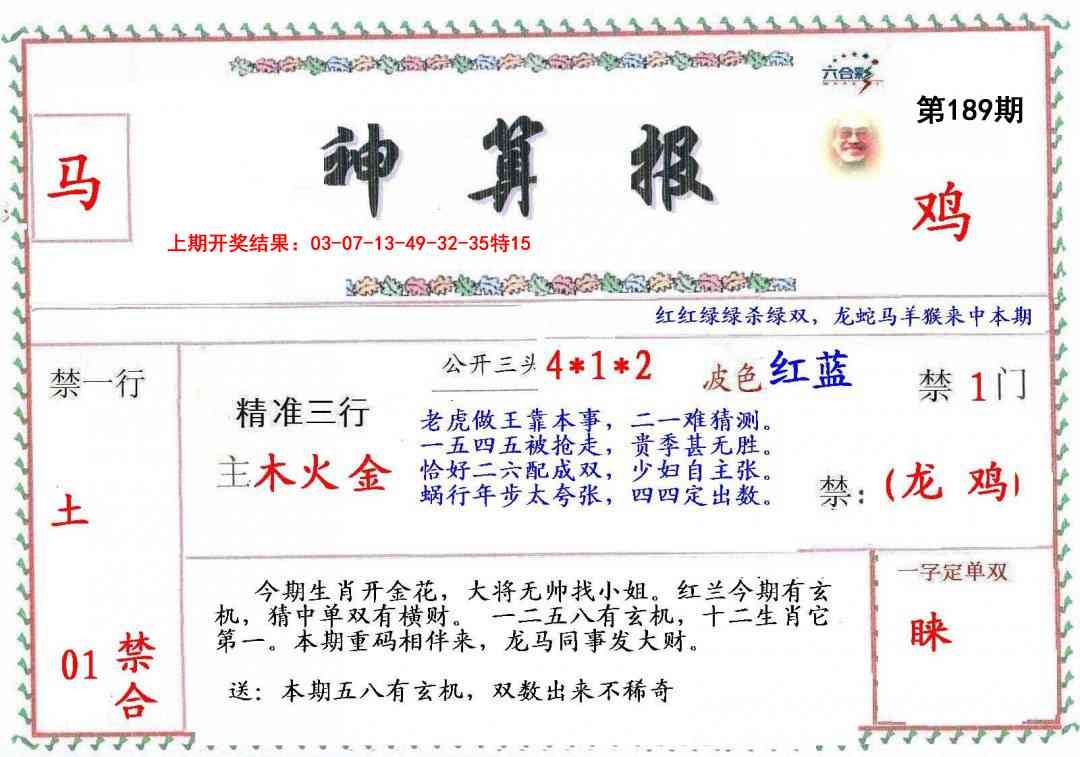 六合彩
第189期
马
神算报
鸡
上期开奖结果：03-07-13-49-32-35特15
红红绿绿杀绿双，龙蛇马羊猴来中本期
禁一行
土
01 禁合
精准三行
主木火金
公开三头 4*1*2
波色 红蓝
老虎做王靠本事，二一难猜测。
一五四五被抢走，贵季甚无胜。
恰好二六配成双，少妇自主张。
蜗行年步太夸张，四四定出数。
禁1门
禁：(龙 鸡)
今期生肖开金花，大将无帅找小姐。红兰今期有玄
机，猜中单双有横财。 一二五八有玄机，十二生肖它
第一。本期重码相伴来，龙马同事发大财。
送：本期五八有玄机，双数出来不稀奇
一字定单双
睐